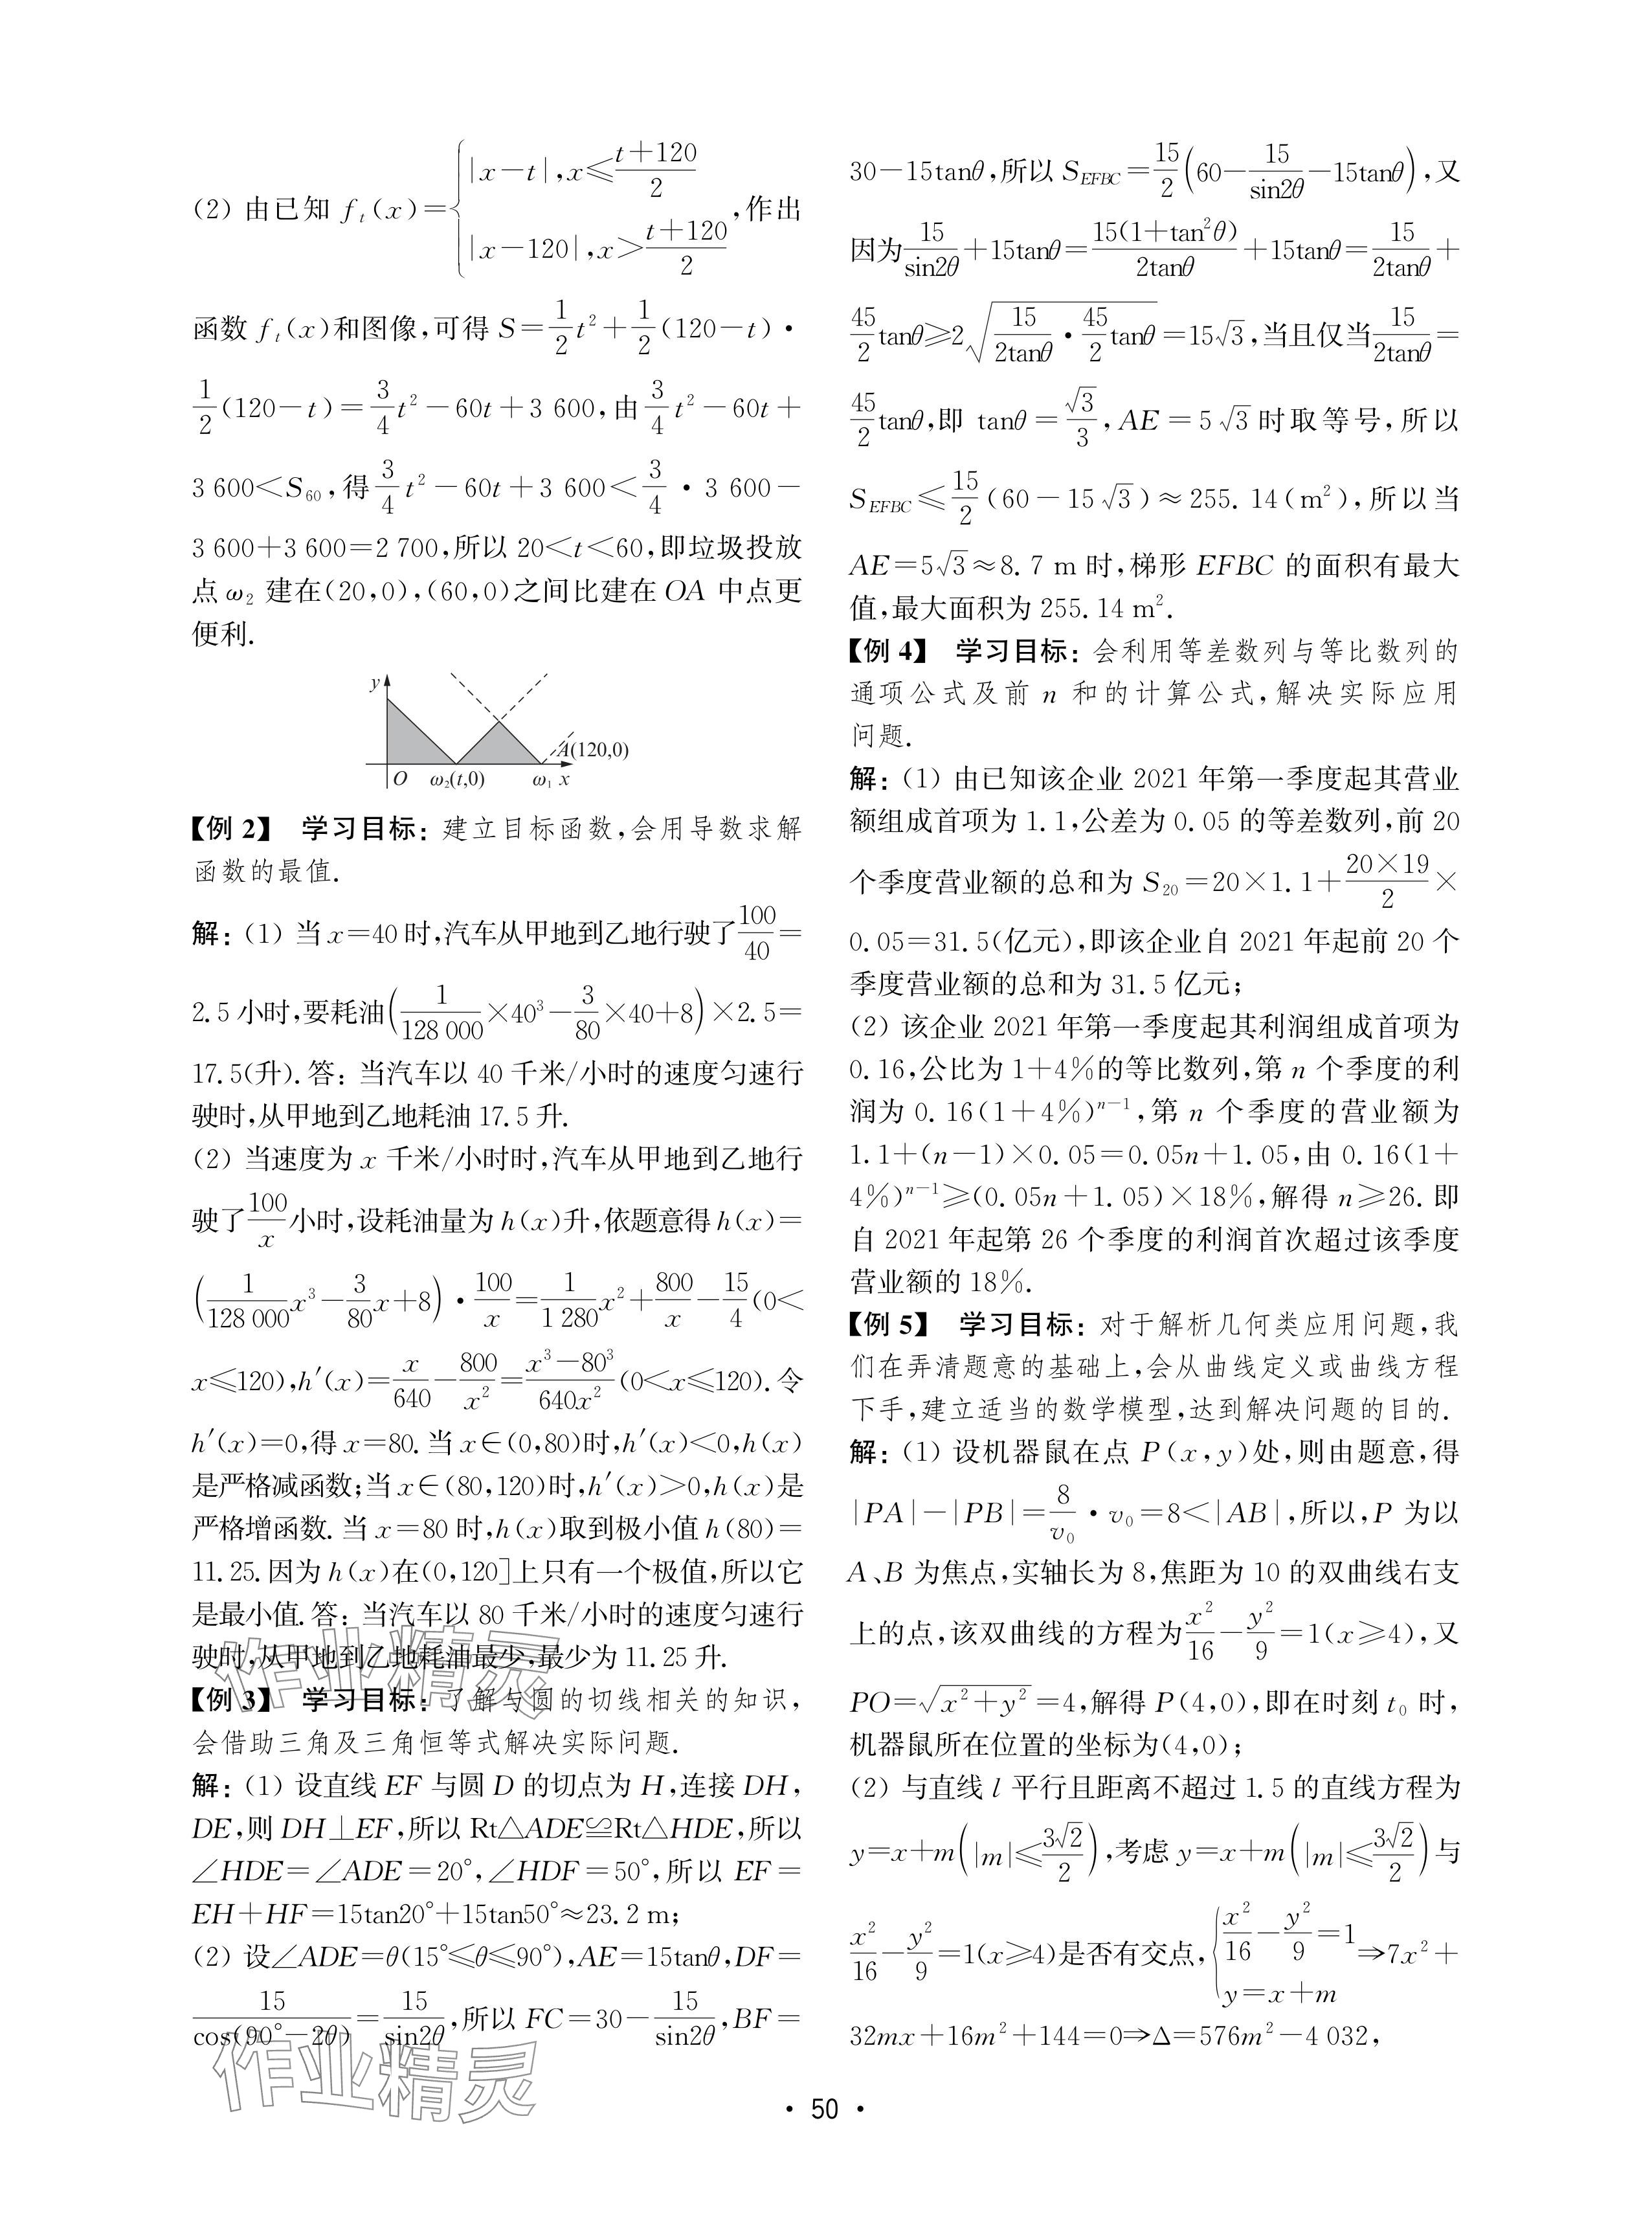 (2) 由已知 fₜ(x)={|x−t|,x⩽(t+120)/2
|x−120|,x>(t+120)/2 ,作出
函数 fₜ(x)和图像,可得 S=1/2 t²+1/2(120−t)·
1/2(120−t)=3/4 t²−60t+3 600,由3/4 t²−60t+
3 600<S₆₀,得3/4 t²−60t+3 600<3/4·3 600−
3 600+3 600=2 700,所以 20<t<60,即垃圾投放
点 ω₂ 建在(20,0),(60,0)之间比建在 OA 中点更
便利.
y
A(120,0)
O ω₂(t,0) ω₁ x
【例 2】 学习目标: 建立目标函数,会用导数求解
函数的最值.
解: (1) 当 x=40 时,汽车从甲地到乙地行驶了100/40=
2.5 小时,要耗油(1/128 000×40³−3/80×40+8)×2.5=
17.5(升). 答: 当汽车以 40 千米/小时的速度匀速行
驶时,从甲地到乙地耗油 17.5 升.
(2) 当速度为 x 千米/小时时,汽车从甲地到乙地行
驶了100/x小时,设耗油量为 h(x)升,依题意得 h(x)=
(1/128 000 x³−3/80 x+8)·100/x=1/1 280 x²+800/x−15/4(0<
x⩽120),h′(x)=x/640−800/x²=(x³−80³)/640x²(0<x⩽120). 令
h′(x)=0,得 x=80. 当 x∈(0,80)时,h′(x)<0,h(x)
是严格减函数;当 x∈(80,120)时,h′(x)>0,h(x)是
严格增函数. 当 x=80 时,h(x)取到极小值 h(80)=
11.25. 因为 h(x)在(0,120]上只有一个极值,所以它
是最小值. 答: 当汽车以 80 千米/小时的速度匀速行
驶时,从甲地到乙地耗油最少,最少为 11.25 升.
【例 3】 学习目标: 了解与圆的切线相关的知识,
会借助三角及三角恒等式解决实际问题.
解: (1) 设直线 EF 与圆 D 的切点为 H,连接 DH,
DE,则 DH⊥EF,所以 Rt△ADE≌Rt△HDE,所以
∠HDE=∠ADE=20°,∠HDF=50°,所以 EF=
EH+HF=15tan20°+15tan50°≈23.2 m;
(2) 设∠ADE=θ(15°⩽θ⩽90°),AE=15tanθ,DF=
15/cos(90°−2θ)=15/sin2θ,所以 FC=30−15/sin2θ,BF=
30−15tanθ,所以 S_EFBC=15/2(60−15/sin2θ−15tanθ),又
因为15/sin2θ+15tanθ=15(1+tan²θ)/2tanθ+15tanθ=15/2tanθ+
45/2 tanθ⩾2√(15/2tanθ·45/2 tanθ)=15√3,当且仅当15/2tanθ=
45/2 tanθ,即 tanθ=√3/3,AE=5√3时取等号,所以
S_EFBC⩽15/2(60−15√3)≈255.14(m²),所以当
AE=5√3≈8.7 m 时,梯形 EFBC 的面积有最大
值,最大面积为 255.14 m².
【例 4】 学习目标: 会利用等差数列与等比数列的
通项公式及前 n 和的计算公式,解决实际应用
问题.
解: (1) 由已知该企业 2021 年第一季度起其营业
额组成首项为 1.1,公差为 0.05 的等差数列,前 20
个季度营业额的总和为 S₂₀=20×1.1+(20×19)/2×
0.05=31.5(亿元),即该企业自 2021 年起前 20 个
季度营业额的总和为 31.5 亿元;
(2) 该企业 2021 年第一季度起其利润组成首项为
0.16,公比为 1+4%的等比数列,第 n 个季度的利
润为 0.16(1+4%)ⁿ⁻¹,第 n 个季度的营业额为
1.1+(n−1)×0.05=0.05n+1.05,由 0.16(1+
4%)ⁿ⁻¹⩾(0.05n+1.05)×18%,解得 n⩾26. 即
自 2021 年起第 26 个季度的利润首次超过该季度
营业额的 18%.
【例 5】 学习目标: 对于解析几何类应用问题,我
们在弄清题意的基础上,会从曲线定义或曲线方程
下手,建立适当的数学模型,达到解决问题的目的.
解: (1) 设机器鼠在点 P(x,y)处,则由题意,得
|PA|−|PB|=8/v₀·v₀=8<|AB|,所以,P 为以
A、B 为焦点,实轴长为 8,焦距为 10 的双曲线右支
上的点,该双曲线的方程为x²/16−y²/9=1(x⩾4),又
PO=√(x²+y²)=4,解得 P(4,0),即在时刻 t₀ 时,
机器鼠所在位置的坐标为(4,0);
(2) 与直线 l 平行且距离不超过 1.5 的直线方程为
y=x+m(|m|⩽3√2/2),考虑 y=x+m(|m|⩽3√2/2)与
x²/16−y²/9=1(x⩾4)是否有交点,{x²/16−y²/9=1
y=x+m ⇒7x²+
32mx+16m²+144=0⇒Δ=576m²−4 032,
作业精灵
作业精灵
· 50 ·